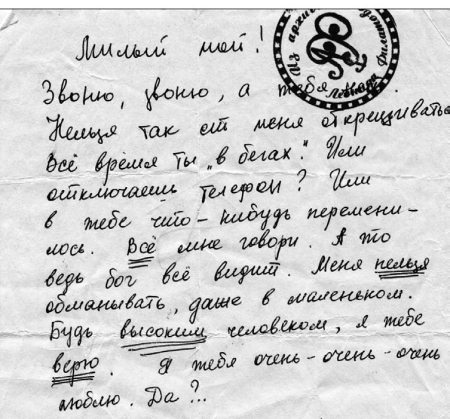 Милый мой!
Звоню, звоню, а тебя
Нельзя так от меня открещиваться
Всё время ты „в бегах“. Или
отключаешь телефон? Или
в тебе что-нибудь перемени-
лось. Всё мне говори. А то
ведь бог всё видит. Меня нельзя
обманывать, даже в маленьком.
Будь высоким человеком, я тебе
верю. Я тебя очень-очень-очень
люблю. Да?..
Из архива Леонида Филатова